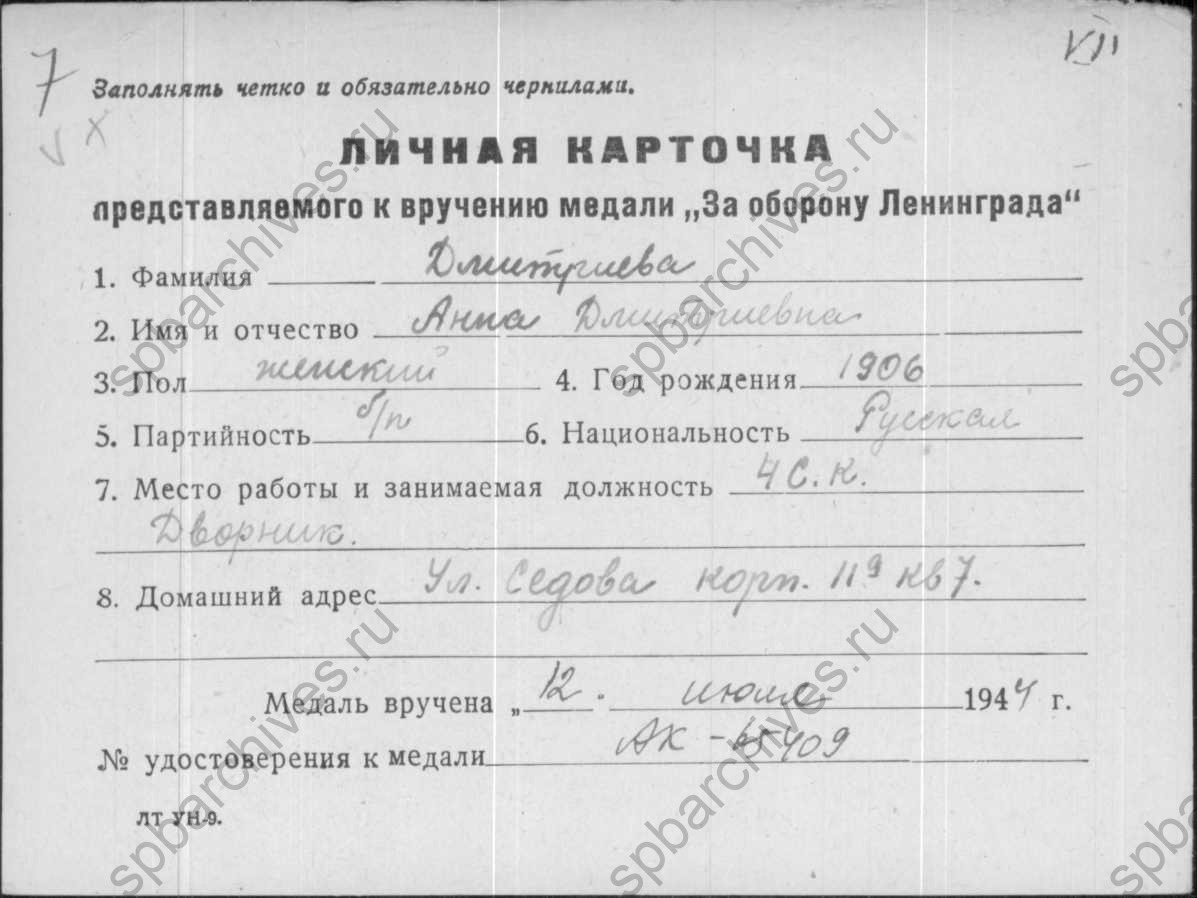 VII
7
Заполнять четко и обязательно чернилами.
V X
ЛИЧНАЯ КАРТОЧКА
представляемого к вручению медали „За оборону Ленинграда“
1. Фамилия Дмитриева
2. Имя и отчество Анна Дмитриевна
3. Пол женский 4. Год рождения 1906
5. Партийность б/п 6. Национальность Русская
7. Место работы и занимаемая должность 4 С.К.
Дворник.
8. Домашний адрес Ул. Седова корп. 11а кв 7.
Медаль вручена „12. июля 1944 г.
№ удостоверения к медали АК - 409
ЛТ УН-9.
spbarchives.ru
spbarchives.ru
spbarchives.ru
spbarchives.ru